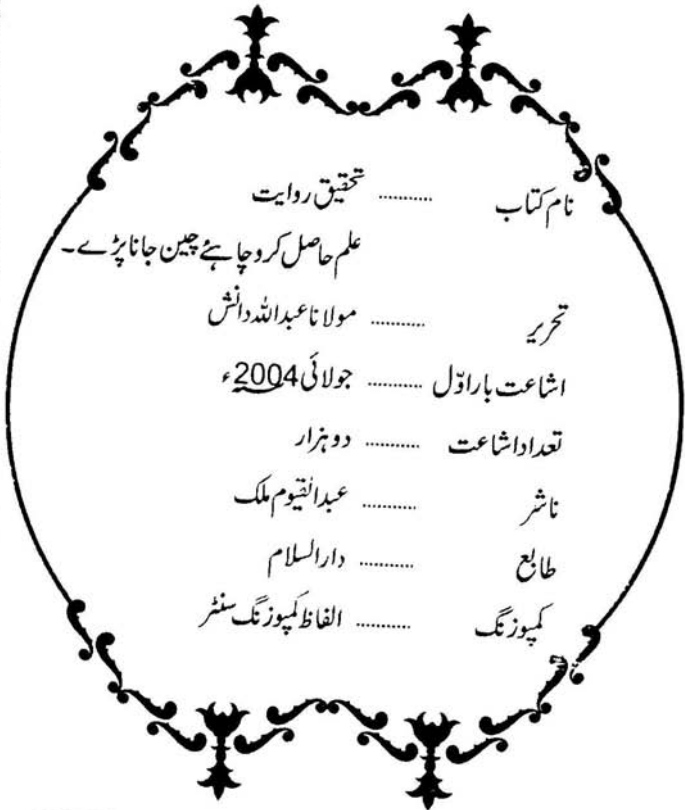 نام کتاب .......... تحقیق روایت
علم حاصل کرو چاہئے چین جانا پڑے۔
تحریر .......... مولانا عبداللہ دانش
اشاعت بار اوّل .......... جولائی 2004ء
تعداد اشاعت .......... دو ہزار
ناشر .......... عبدالقیوم ملک
طابع .......... دارالسلام
کمپوزنگ .......... الفاظ کمپوزنگ سنٹر